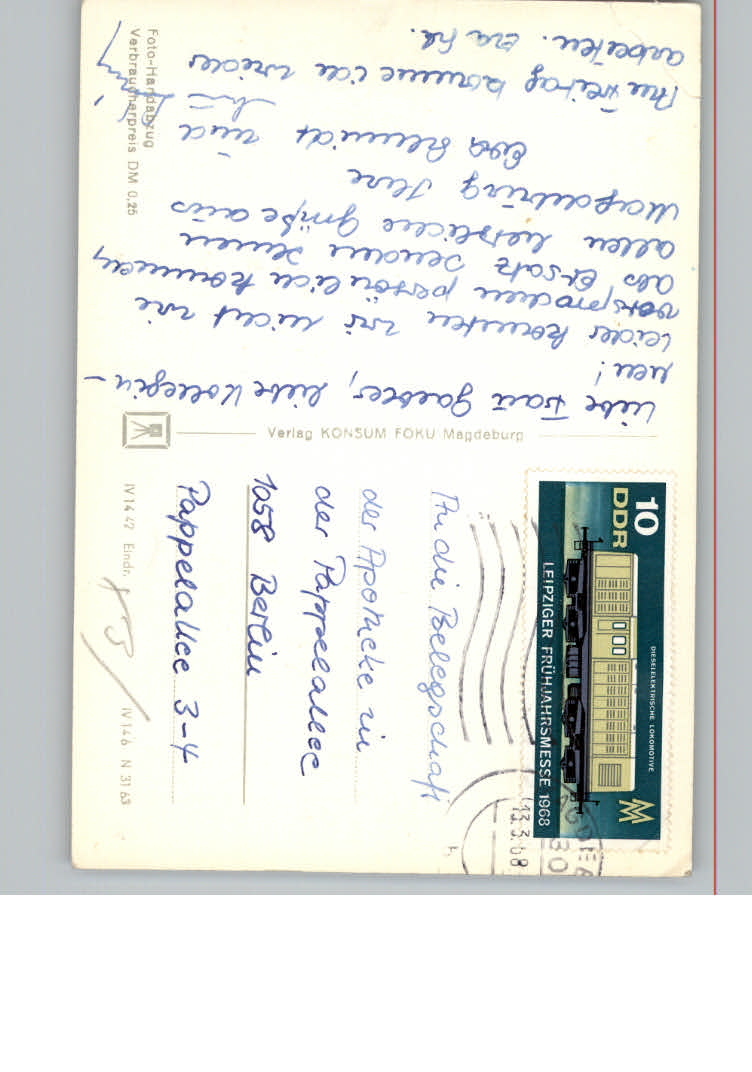 Liebe Frau Gaebler, liebe Kollegin-
nen!
Leider konnten wir nicht wie
versprochen persönlich kommen
als Ersatz senden Ihnen
allen herzliche Grüße aus
Magdeburg Ihre
Eva Schmidt und
Am Freitag komme ich wieder
arbeiten.
Foto-Handabzug
Verbraucherpreis DM 0,25
Verlag KONSUM FOKU Magdeburg
An die Belegschaft
der Apotheke in
der Pappelallee
1058 Berlin
Pappelallee 3-4
IV 14 42 Eindr.
IV 14 6 N 31 63
10
DDR
DIESELELEKTRISCHE LOKOMOTIVE
LEIPZIGER FRÜHJAHRSMESSE 1968
MM
13.3.68